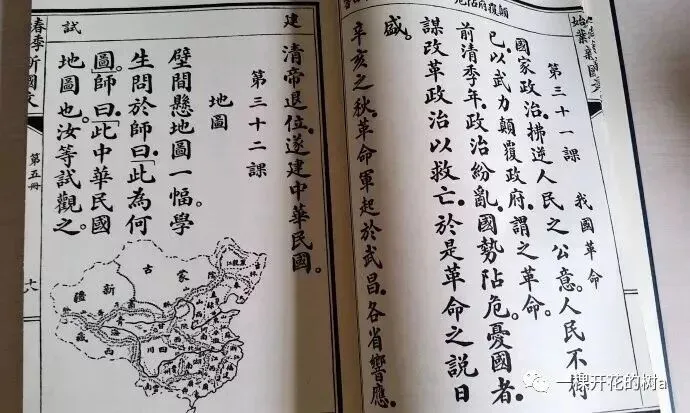 顛覆府阽危
第三十一課　我國革命
國家政治。拂逆人民之公意。人民不得
已以武力顛覆政府。謂之革命。
前清季年。政治紛亂。國勢阽危。憂國者。
謀改革政治以救亡。於是革命之說日
盛。
辛亥之秋。革命軍起於武昌。各省響應。
建
試
清帝退位。遂建中華民國。
第三十二課
地圖
壁間懸地圖一幅。學
生問於師曰。「此為何
圖。」師曰。「此中華民國
地圖也。汝等試觀之。
蒙古
新疆
西藏
四川
黑龍江
春季新國文
第五冊
一棵开花的树a